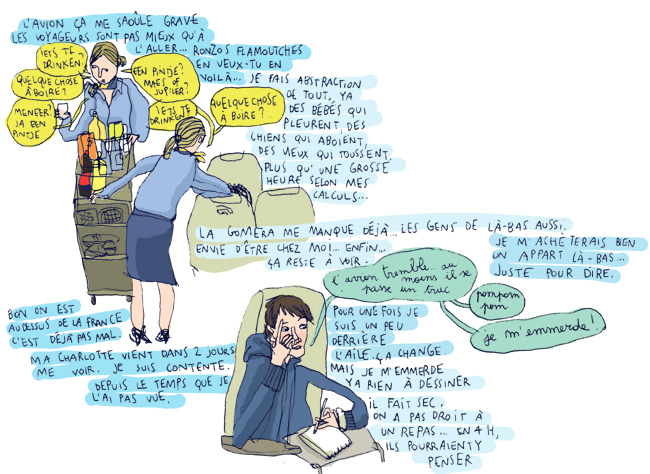 L'AVION ÇA ME SAOÛLE GRAVE
LES VOYAGEURS SONT PAS MIEUX QU'À
L'ALLER... RONZOS FLAMOUTCHES
EN VEUX-TU EN
VOILÀ... JE FAIS ABSTRACTION
DE TOUT, YA
DES BÉBÉS QUI
PLEURENT, DES
CHIENS QUI ABOIENT,
DES VIEUX QUI TOUSSENT.
PLUS QU'UNE GROSSE
HEURE SELON MES
CALCULS...
IETS TE
DRINKEN?
QUELQUE CHOSE
À BOIRE?
MENEER?
JA EEN
PINTJE
EEN PINTJE?
MAES OF
JUPILER?
IETS TE
DRINKEN?
QUELQUE CHOSE
À BOIRE?..
LA GOMERA ME MANQUE DÉJÀ... LES GENS DE LÀ-BAS AUSSI.
ENVIE D'ÊTRE CHEZ MOI... ENFIN...
ÇA RESTE À VOIR.
JE M'ACHÈTERAIS BEN
UN APPART LÀ-BAS...
JUSTE POUR DIRE.
BON ON EST
AU DESSUS DE LA FRANCE
C'EST DÉJÀ PAS MAL.
MA CHARLOTTE VIENT DANS 2 JOURS
ME VOIR. JE SUIS CONTENTE.
DEPUIS LE TEMPS QUE JE
L'AI PAS VUE.
l'avion tremble.. au
moins il se
passe un truc
pompom
pom
je m'emmerde!
POUR UNE FOIS JE
SUIS UN PEU
DERRIÈRE
L'AILE. ÇA CHANGE.
MAIS JE M'EMMERDE
YA RIEN À DESSINER
IL FAIT SEC.
ON A PAS DROIT À
UN REPAS... EN 4H,
ILS POURRAIENT Y
PENSER